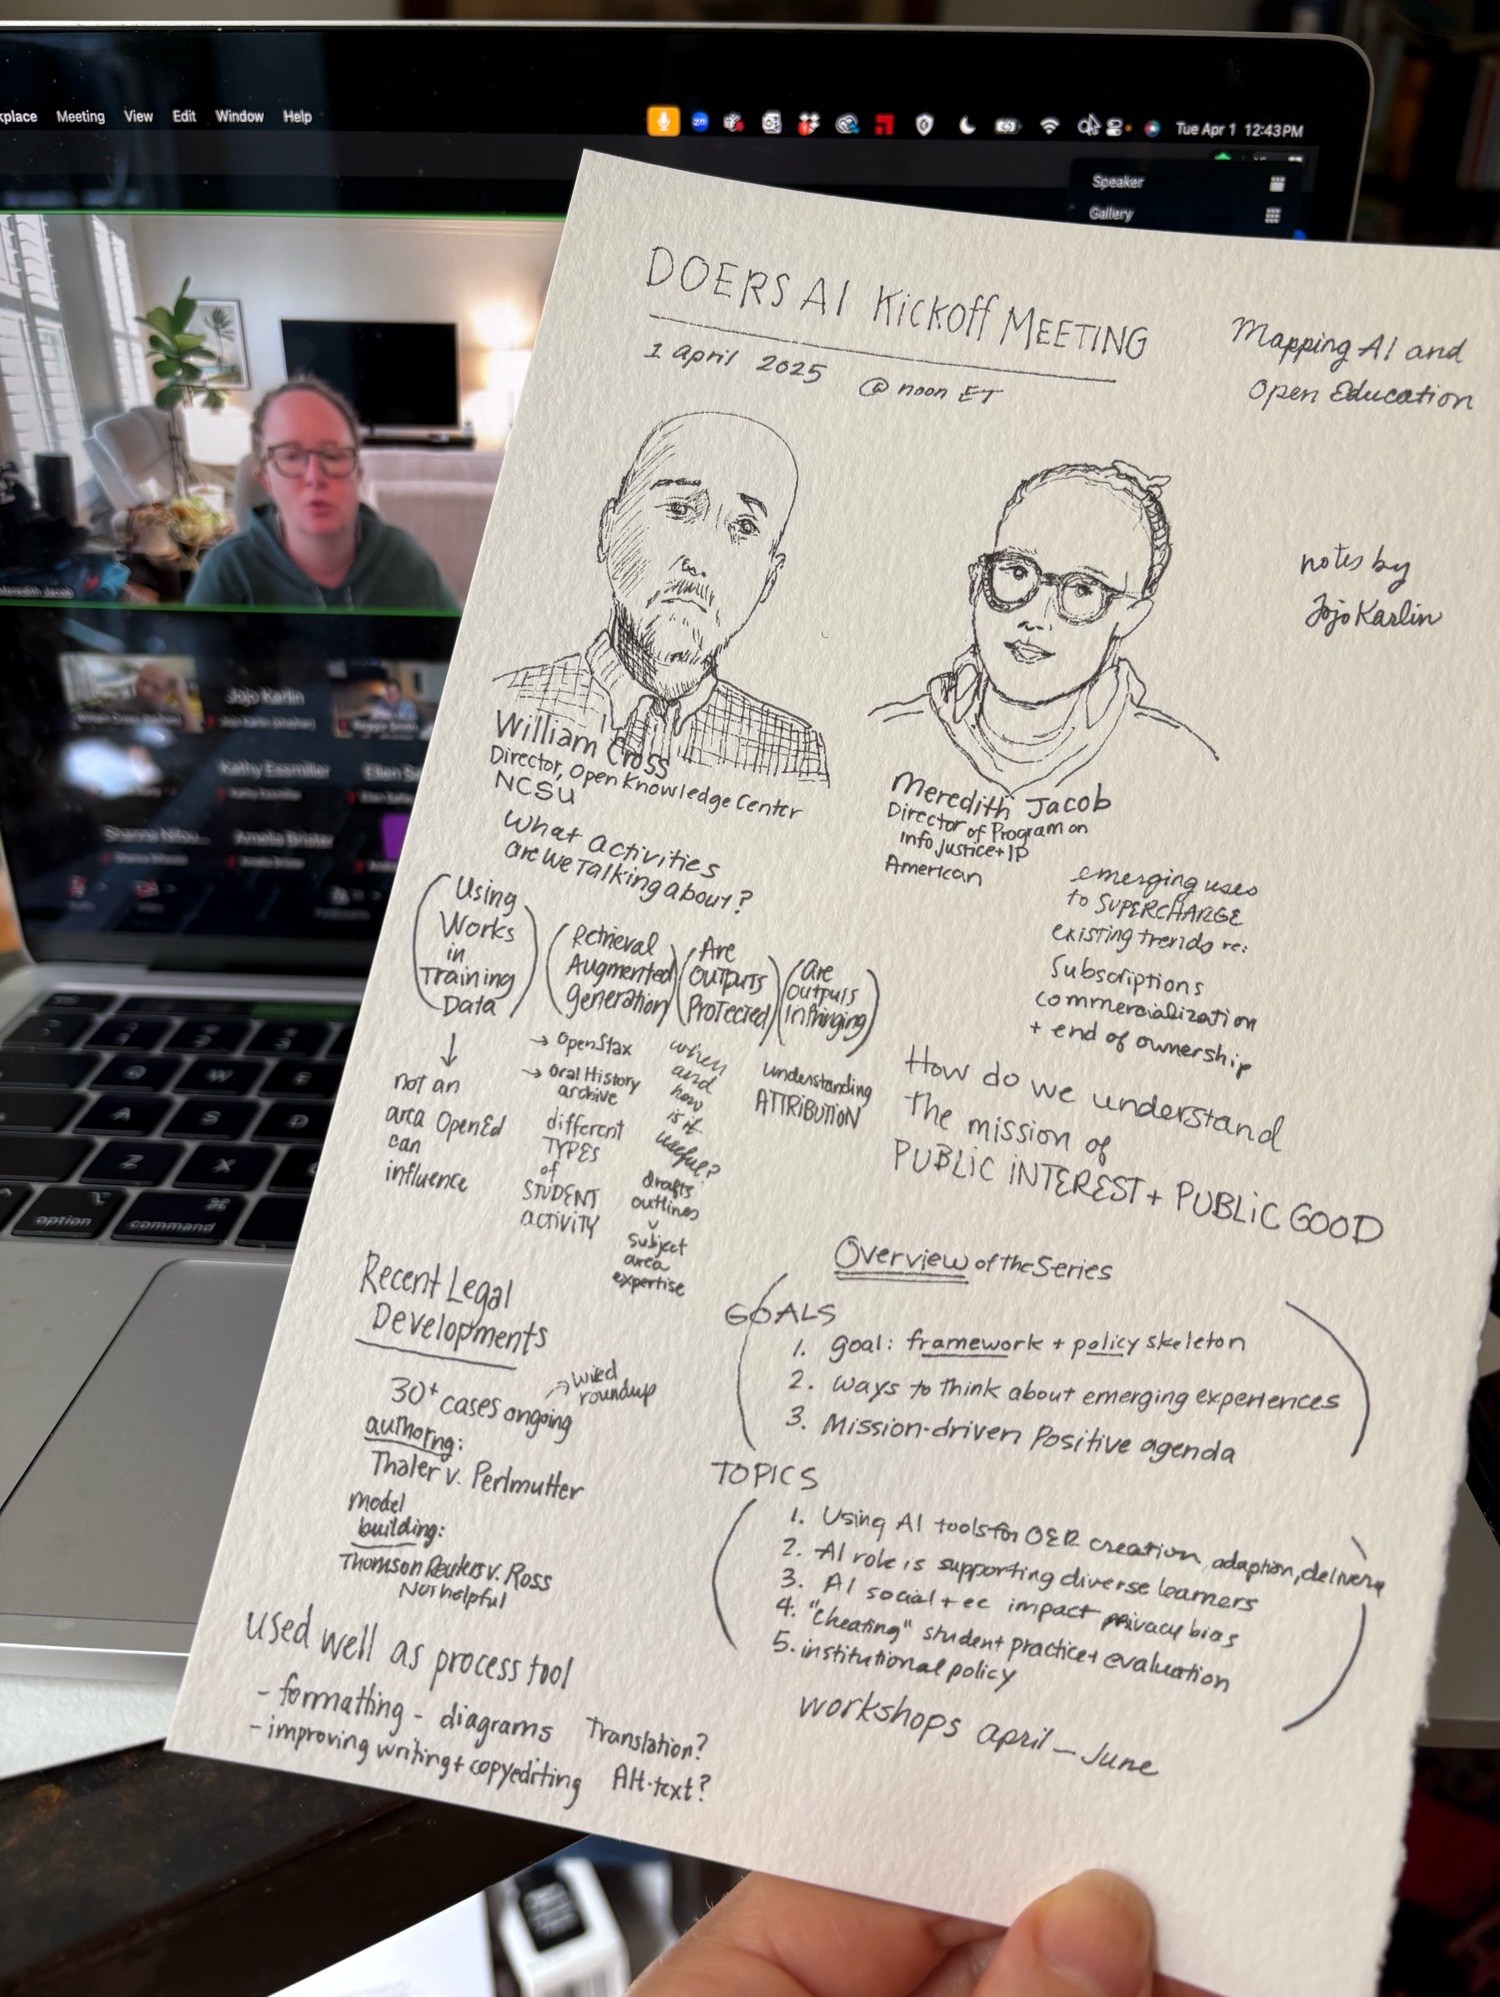 Meeting View Edit Window Help
Tue Apr 1 12:43 PM
Speaker
Gallery
DOERS AI Kickoff MEETING
1 april 2025 @ noon ET
Mapping AI and
Open Education
notes by
Jojo Karlin
William Cross
Director, Open Knowledge Center
NCSU
What activities
are we Talking about?
Using
Works
in
Training
Data
↓
not an
area OpenEd
can
influence
Retrieval
Augmented
generation
→ OpenStax
→ Oral History
archive
different
TYPES
of
STUDENT
activity
Are
OUTPUTS
PROTECTED
when
and
how
is it
useful?
drafts
outlines
subject
area
expertise
are
outputs
infringing
understanding
ATTRIBUTION
Meredith Jacob
Director of Program on
Info Justice + IP
American
emerging uses
to SUPERCHARGE
existing trends re:
Subscriptions
commercialization
+ end of ownership
How do we understand
the mission of
PUBLIC INTEREST + PUBLIC GOOD
Recent Legal
Developments
30+ cases ongoing
→ wired
roundup
authorng:
Thaler v. Perlmutter
model
building:
Thomson Reuters v. Ross
Not helpful
used well as process tool
- formatting - diagrams Translation?
- improving writing + copyediting Alt-text?
Overview of the Series
GOALS
1. goal: framework + policy skeleton
2. ways to think about emerging experiences
3. Mission-driven Positive agenda
TOPICS
1. Using AI tools for OER creation, adaption, delivery
2. AI role is supporting diverse learners
3. AI social + ec impact privacy bias
4. "cheating" student practice + evaluation
5. institutional policy
workshops april – June
Meredith Jacob
Jojo Karlin
Kathy Essmiller
Amelia Brister
Z X
option command